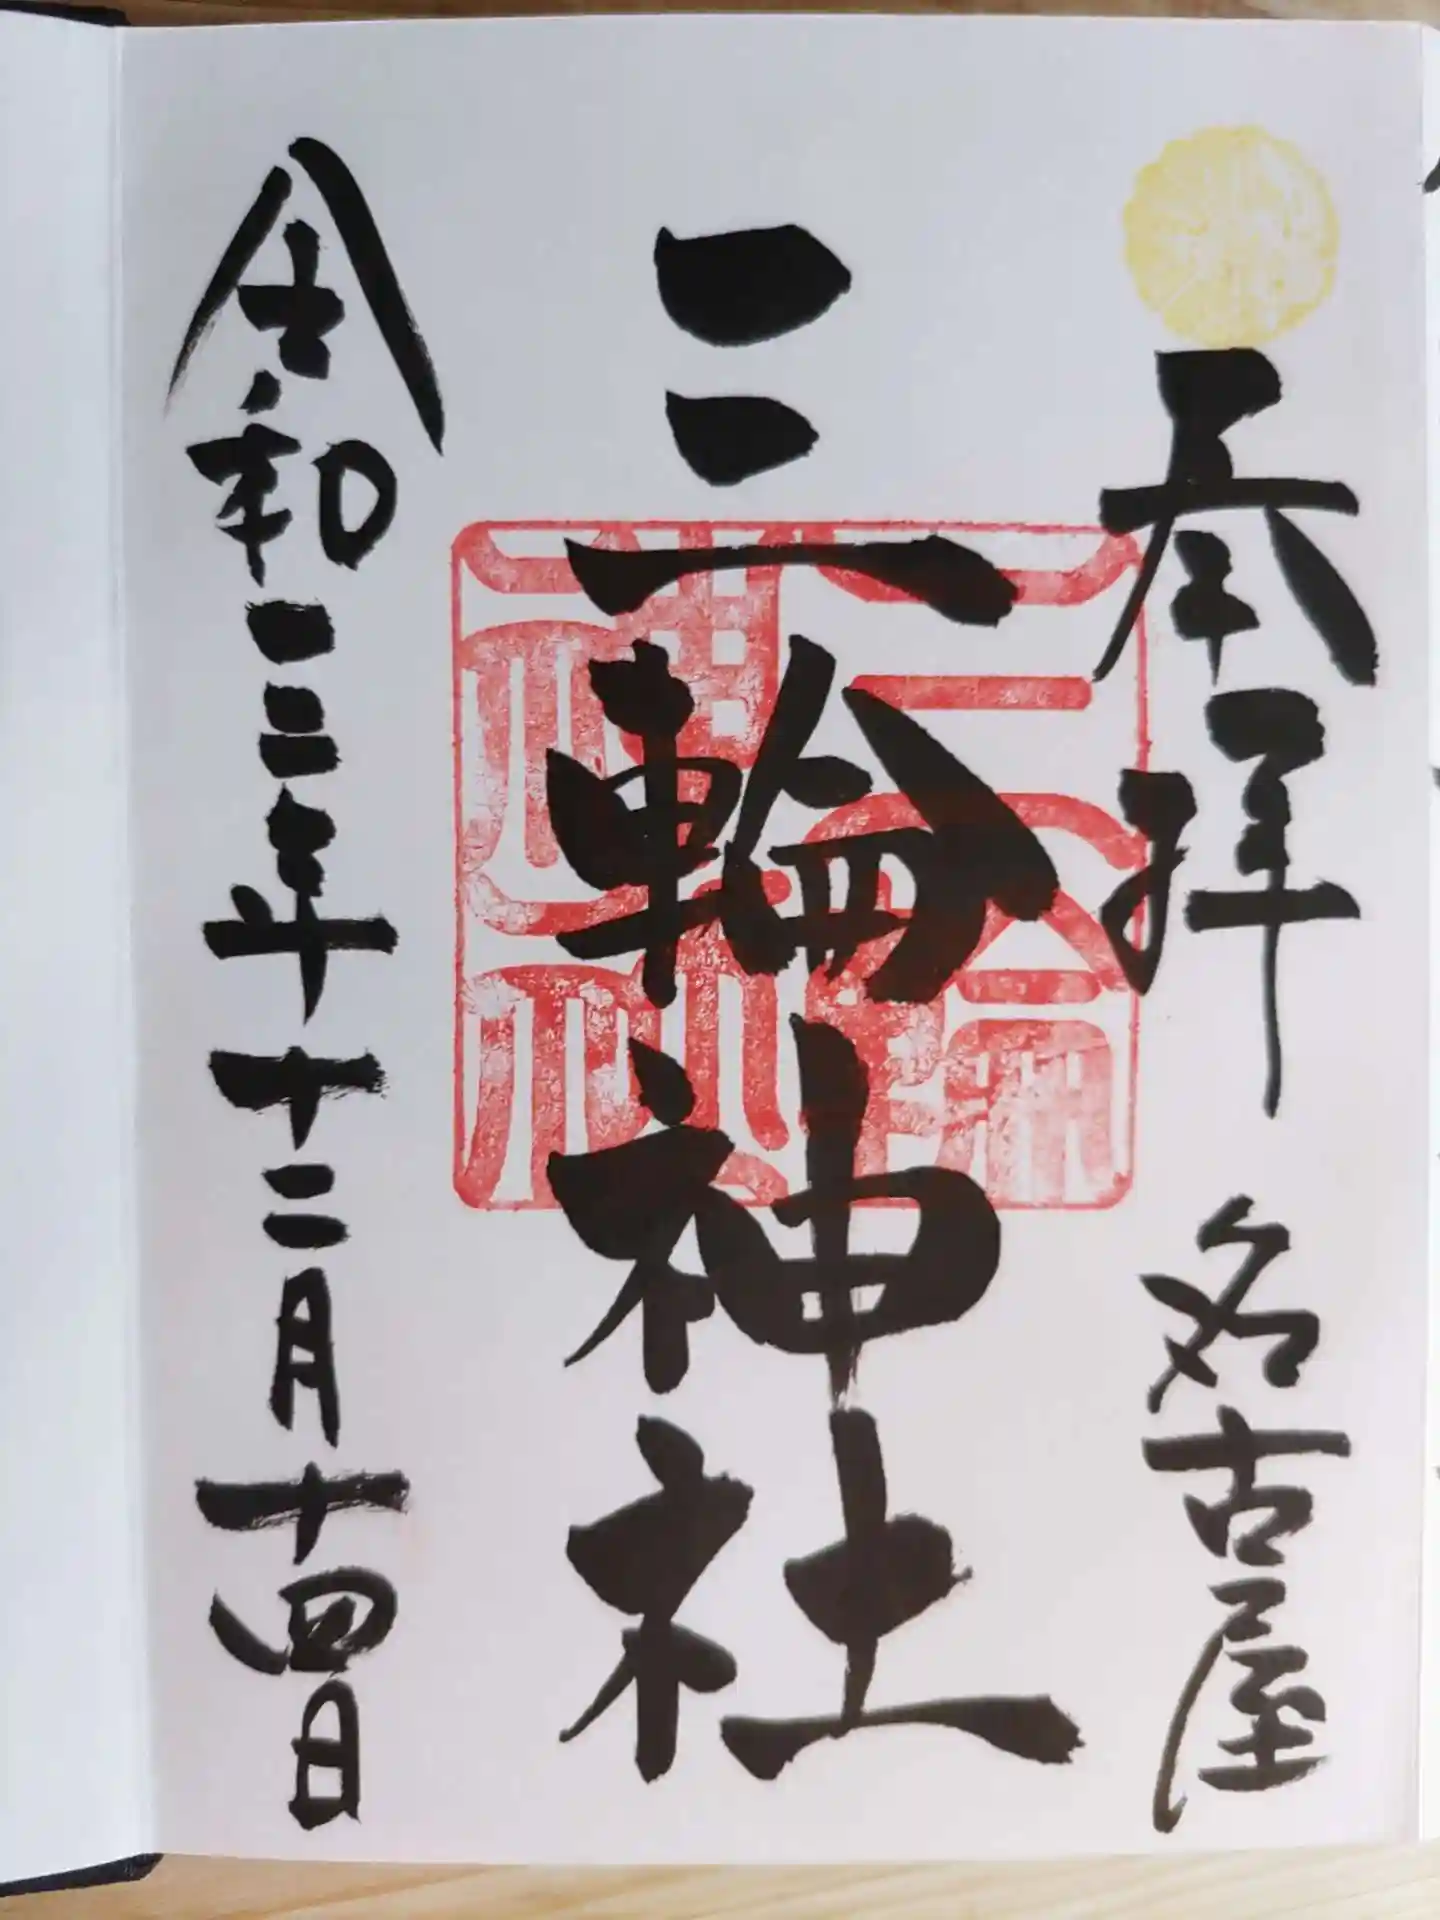 奉拝 名古屋
三輪神社
三輪神社
令和三年十二月十四日